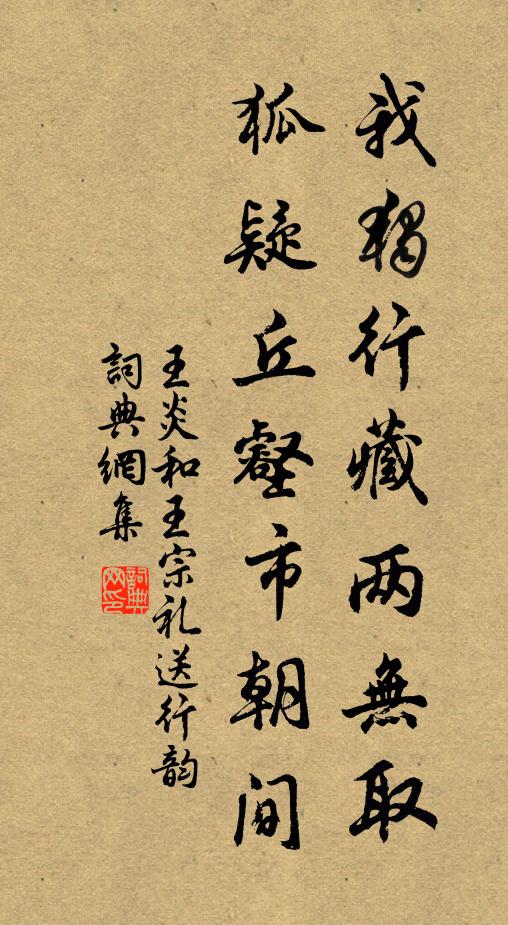 我獨行藏两無取
狐疑丘壑市朝间
王炎和王宗礼送行韵
詞典網集
詞典网印